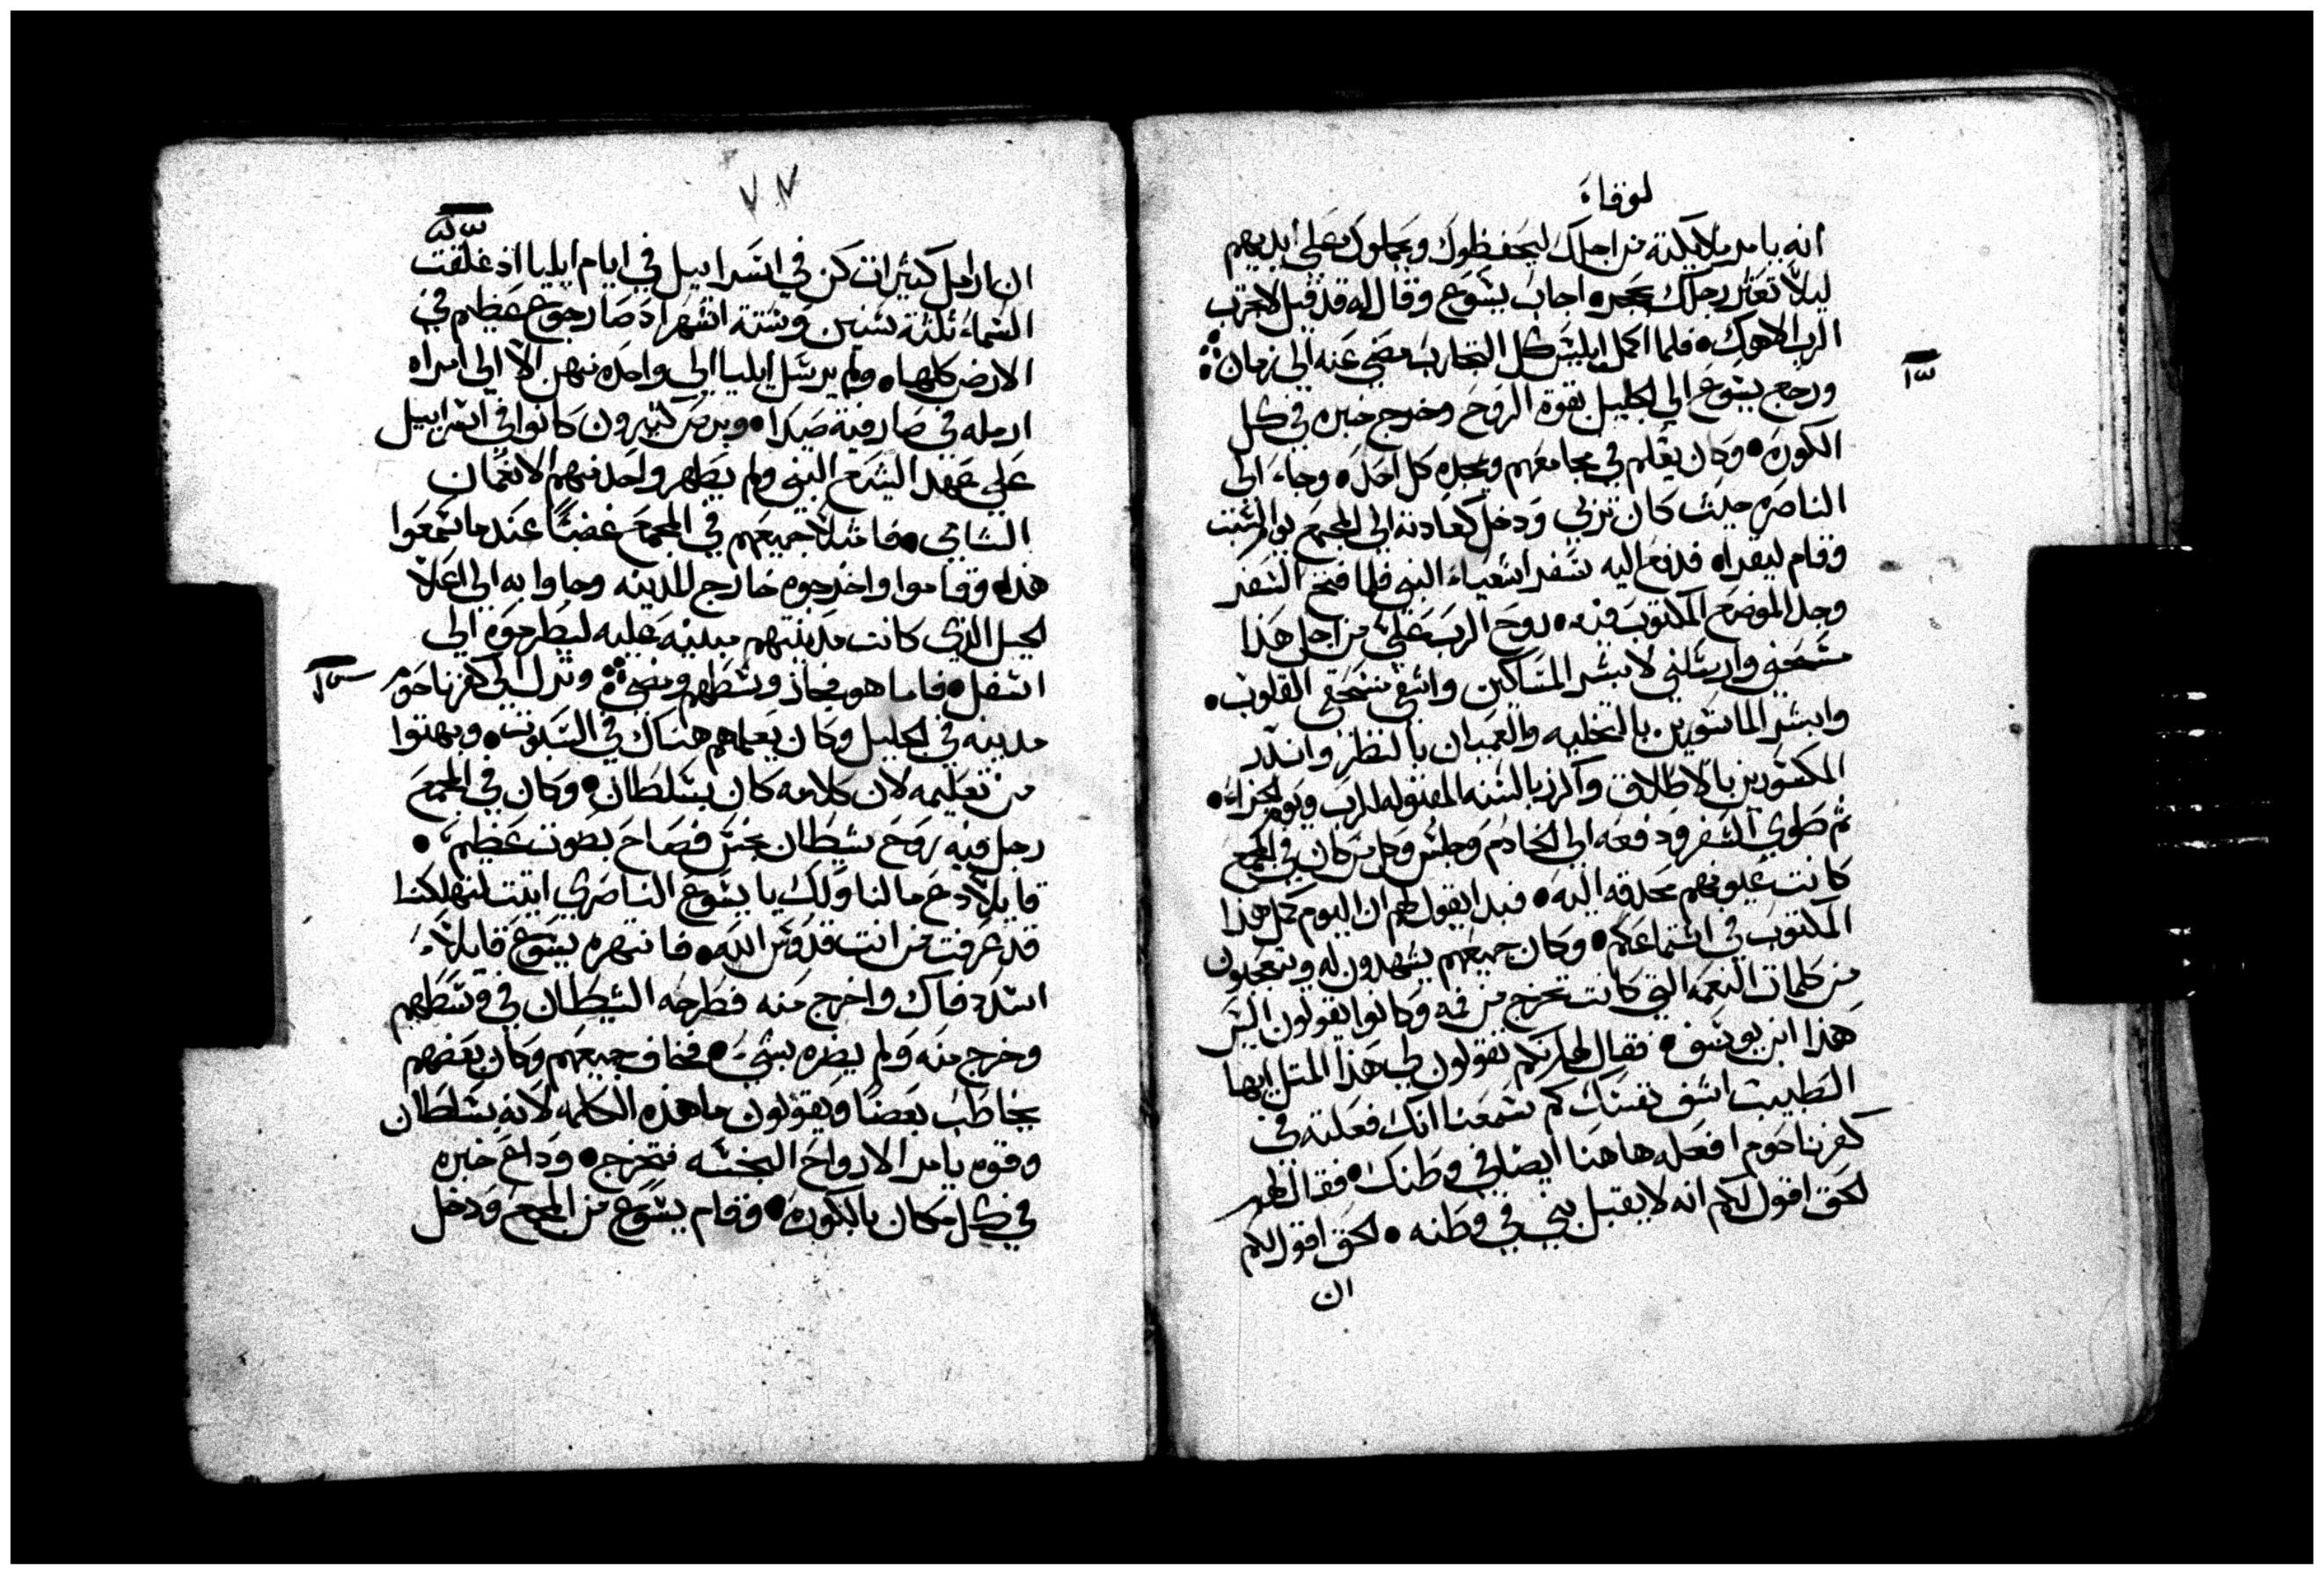 لوقاء
انه يامر ملايكته من اجلك ليحفظوك ويحملوك علي ايديهم
ليلا تعثر رجلك بحجر • اجاب يشوع وقال له قد قيل لا تجرب
الرب الاهك • فلما اكمل ابليس كل التجارب مضي عنه الي زمان
ورجع يشوع الي الجليل بقوة الروح وخرج خبره في كل
الكوره • وكان يعلم في مجامعهم ويمجده كل احد • وجاء الي
الناصره حيث كان تربي ودخل كعادته الي المجمع يوم السبت
وقام ليقرا • فدفع اليه سفر اشعياء النبي فلما فتح السفر
وجد الموضع المكتوب فيه • روح الرب علي من اجل هذا
مسحني وارسلني لابشر المساكين واشفي منسحقي القلوب •
وابشر الماسورين بالتخليه والعميان بالنظر وانذر
المكسورين بالاطلاق واكرز بالسنه المقبوله للرب ويوم الجزاء •
ثم طوي السفر ودفعه الي الخادم وجلس وكل من كان في المجمع
كانت عيونهم محدقه اليه • فبدا يقول لهم ان اليوم كمل هذا
المكتوب في استماعكم • وكان جميعهم يشهدون له ويتعجبون
من كلمات النعمه التي كانت تخرج من فمه وكانوا يقولون اليس
هذا ابن يوسف • فقال لهم لعلكم تقولون لي هذا المتل ايها
الطبيب اشف نفسك كم سمعنا انك فعلته في
كفرناحوم افعله هاهنا ايضا في وطنك • فقال لهم
الحق اقول لكم انه لا يقبل نبي في وطنه • الحق اقول لكم
ان
ان ارامل كثيرات كن في اسراييل في ايام ايليا اذ غلقت
السماء ثلثة سنين وستة اشهر اذ صار جوع عظيم في
الارض كلها • ولم يرسل ايليا الي واحده منهن الا الي امراه
ارمله في صارفية صيدا • وبرص كثيرون كانوا في اسراييل
علي عهد اليشع النبي ولم يطهر واحد منهم الا نعمان
الشامي • فامتلا جميعهم في المجمع غضبا عند ما سمعوا
هذا • وقاموا واخرجوه خارج المدينه وجاوا به الي اعلا
الجبل الذي كانت مدينتهم مبنيه عليه ليطرحوه الي
اسفل • فاما هو فجاز وسطهم ومضي ونزل الي كفرناحوم
مدينه في الجليل وكان يعلمهم هناك في السبوت • وبهتوا
من تعليمه لان كلامه كان بسلطان • وكان في المجمع
رجل فيه روح شيطان نجس فصاح بصوت عظيم •
قايلا دع مالنا ولك يا يشوع الناصري اتيت لتهلكنا
قد عرفت من انت قدوس الله • فانتهره يشوع قايلا
اسدد فاك واخرج منه فطرحه الشيطان في وسطهم
وخرج منه ولم يضره بشيء • فخاف جميعهم وكان بعضهم
يخاطب بعضا ويقولون ما هذه الكلمه لانه بسلطان
وقوه يامر الارواح النجسه فتخرج • وذاع خبره
في كل مكان بالكوره • وقام يشوع من المجمع ودخل